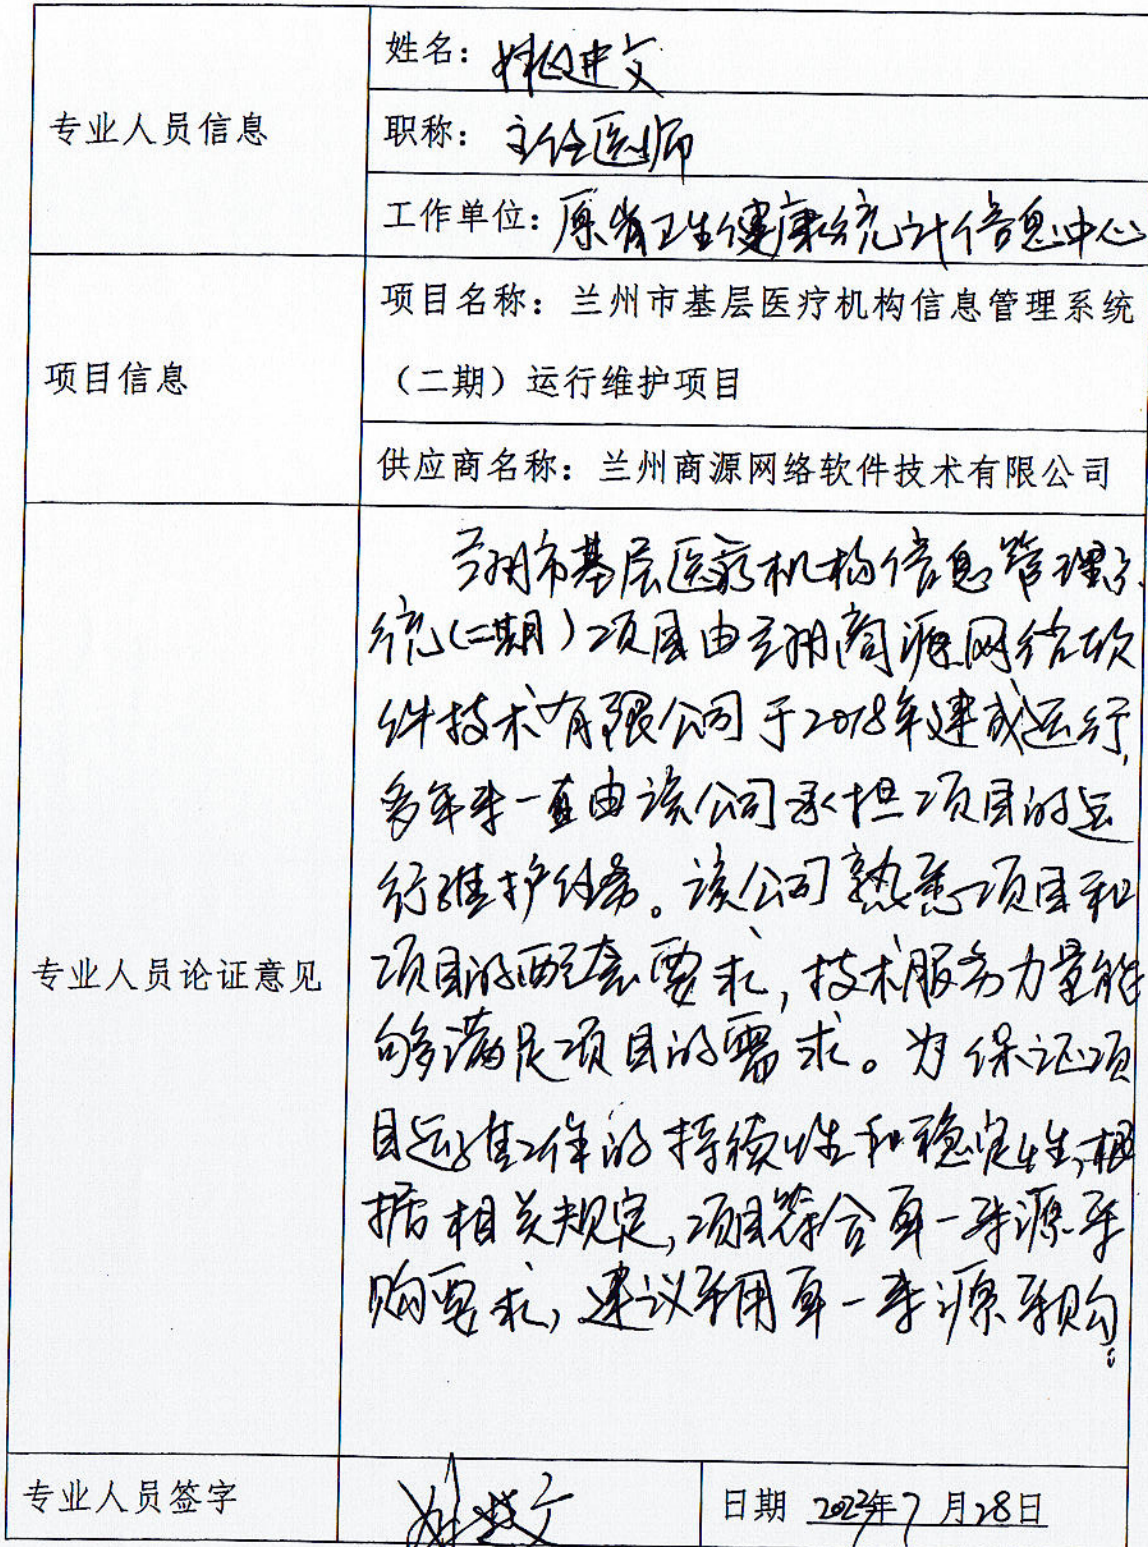 专业人员信息
姓名：建文
职称：主任医师
工作单位：原省卫生健康统计信息中心
项目信息
项目名称：兰州市基层医疗机构信息管理系统
（二期）运行维护项目
供应商名称：兰州商源网络软件技术有限公司
专业人员论证意见
兰州市基层医疗机构信息管理系
统(二期)项目由兰州商源网络软
件技术有限公司于2018年建成运行,
多年来一直由该公司承担项目的运
行维护任务。该公司熟悉项目和
项目的配套要求,技术服务力量能
够满足项目的需求。为保证项
目运维工作的持续性和稳定性,根
据相关规定,项目符合单一来源采
购要求,建议采用单一来源采购。
专业人员签字
日期 2022年7月28日